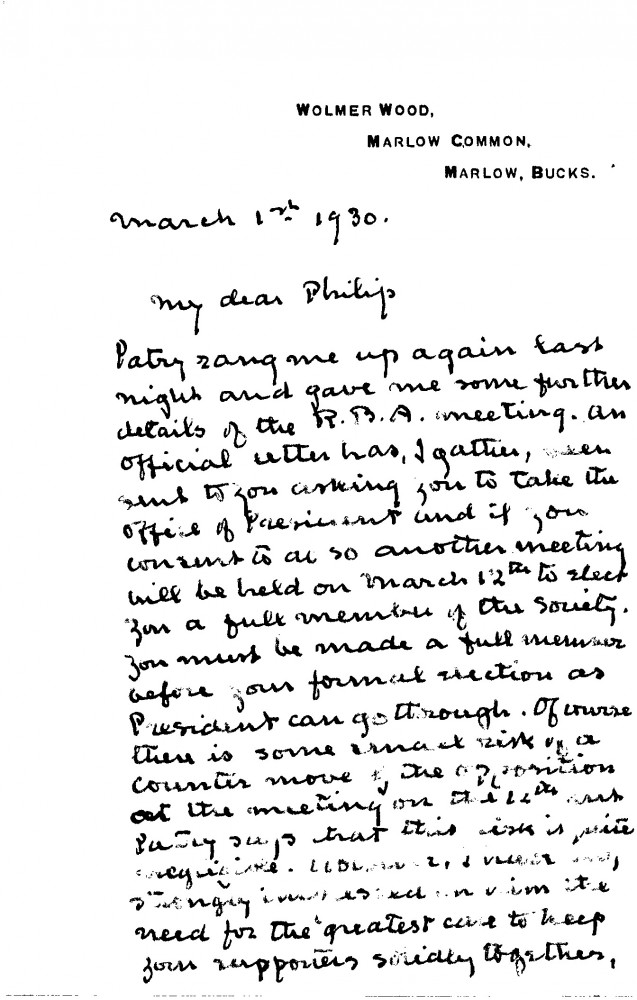 WOLMER WOOD,
MARLOW COMMON,
MARLOW, BUCKS.
March 1st 1930.
My dear Philip
Patry rang me up again last
night and gave me some further
details of the R.B.A. meeting. An
official letter has, I gather, been
sent to you asking you to take the
office of President and if you
consent to do so another meeting
will be held on March 12th to elect
you a full member of the Society.
You must be made a full member
before your formal election as
President can go through. Of course
there is some small risk of a
counter move of the opposition
at the meeting on the 12th but
Patry says that this risk is quite
negligible. However, I
strongly impressed on him the
need for the greatest care to keep
your supporters solidly together,